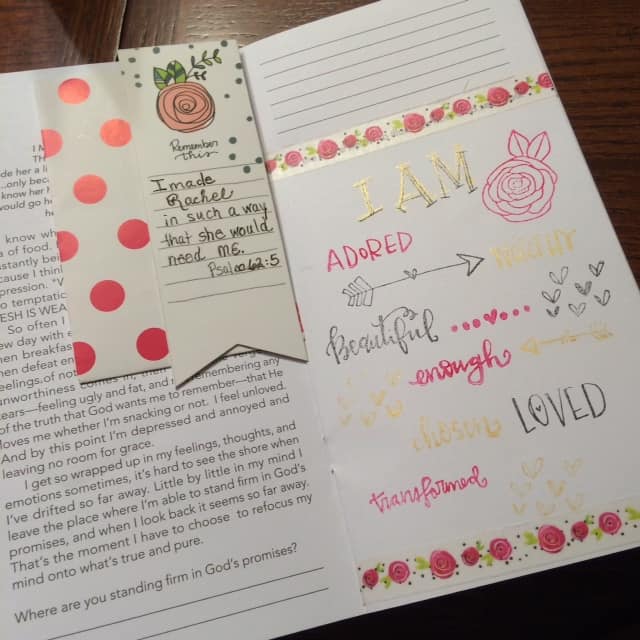 ...only
know her
would go
know
of food.
because I think
to temptation
So often I
new day with
when breakfast
feelings of not
unworthiness
tears—feeling ugly and fat, and remembering any
of the truth that God wants me to remember—that He
loves me whether I'm snacking or not. I feel unloved.
And by this point I'm depressed and annoyed and
leaving no room for grace.
I get so wrapped up in my feelings, thoughts, and
emotions sometimes, it's hard to see the shore when
I've drifted so far away. Little by little in my mind I
leave the place where I'm able to stand firm in God's
promises, and when I look back it seems so far away.
That's the moment I have to choose to refocus my
mind onto what's true and pure.
Where are you standing firm in God's promises?
Remember
this
I made
Rachel
in such a way
that she would
need ME.
Psalm 62:5
I AM
ADORED
worthy
Beautiful
enough
chosen
LOVED
transformed